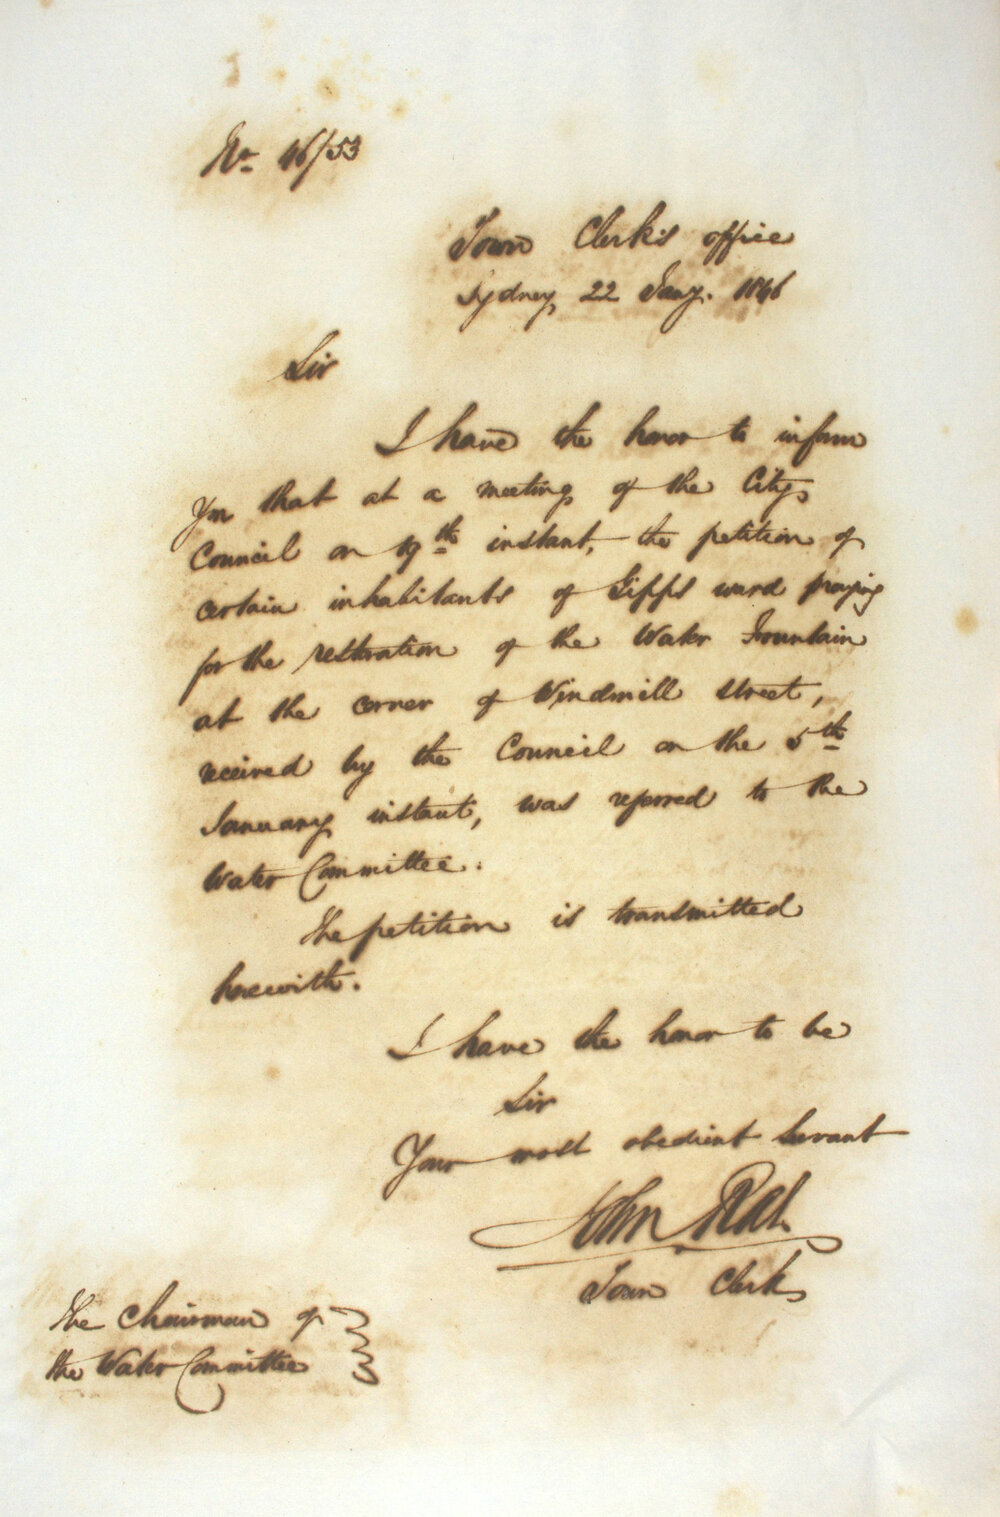 No. 46/53
Town Clerk's office
Sydney 22 Jany. 1846
Sir
I have the honor to inform
you that at a meeting of the City
Council on 19th instant, the petition of
certain inhabitants of Gipps ward praying
for the restoration of the Water Fountain
at the corner of Windmill street,
received by the Council on the 5th
January instant, was referred to the
Water Committee.
The petition is transmitted
herewith.
I have the honor to be
Sir
Your most obedient Servant
John
Town Clerk
The Chairman of
the Water Committee